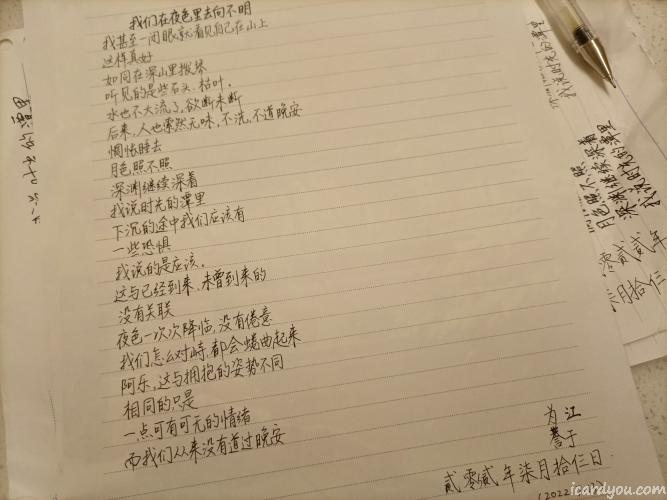 我们在夜色里去向不明
我甚至一闭眼就看见自己在山上
这样真好
如同在深山里拨琴
听见的是些石头、枯叶。
水也不大流了,欲断未断
后来,人也索然无味,不洗,不道晚安
惆怅睡去
月色照不照
深渊继续深着
我说时光的潭里
下沉的途中我们应该有
一些恐惧
我说的是应该。
这与已经到来,未曾到来的
没有关联
夜色一次次降临,没有倦意
我们怎么对峙,都会蜷曲起来
阿乐,这与拥抱的姿势不同
相同的只是
一点可有可无的情绪
而我们从来没有道过晚安
为江
誊于
贰零贰年柒月拾仨日
月色照不照
深渊继续深着
我说时光的潭里
零贰贰年
月拾仨
icardyou.com